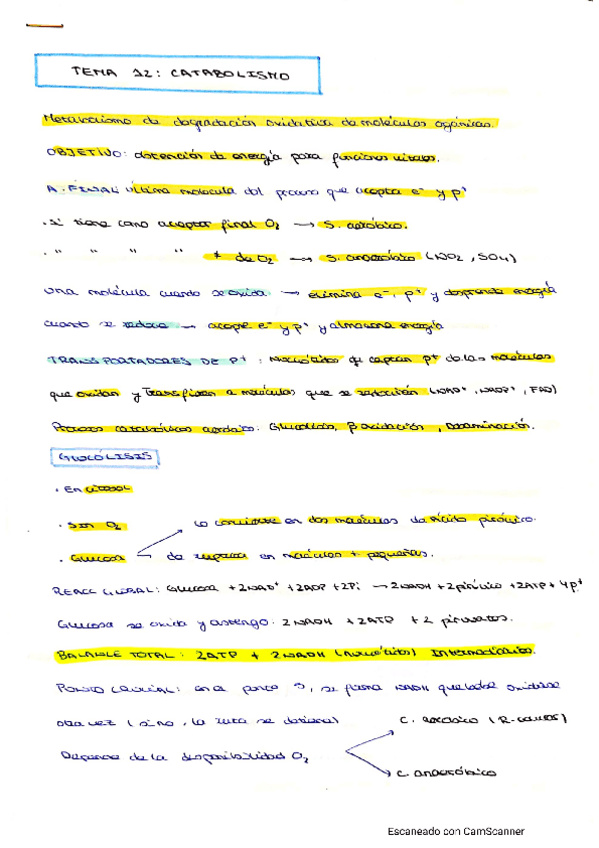 TEMA 12: CATABOLISMO
Metabolismo de degradación oxidativa de moléculas orgánicas.
OBJETIVO: obtención de energía para funciones vitales.
A. FINAL última molécula del proceso que acepta e⁻ y p⁺
. Si tiene como aceptor final O₂ → S. aeróbico.
. " " " " ≠ de O₂ → S. anaeróbico (NO₂, SO₄)
Una molécula cuando se oxida → elimina e⁻, p⁺ y desprende energía
cuando se reduce → acepte e⁻ y p⁺ y almacena energía
TRANSPORTADORES DE P⁺: Nucleótidos q captan p⁺ de las moléculas
que oxidan y transfieren a moléculas que se reducirán (NAD⁺, NADP⁺, FAD)
Procesos catabólicos aerobios: Glucólisis, β oxidación, Desaminación.
GLUCÓLISIS
. En citosol
. Sin O₂
se convierte en dos moléculas de ácido pirúvico.
. Glucosa
de rompe en moléculas + pequeñas.
REACC GLOBAL: Glucosa + 2NAD⁺ + 2ADP + 2Pi → 2NADH + 2pirúvico + 2ATP + 4p⁺
Glucosa se oxida y obtengo: 2NADH + 2ATP + 2 piruvatos.
BALANCE TOTAL: 2ATP + 2NADH Intermediarios.
PUNTO CRUCIAL: en el punto 5, se forma NADH que debe oxidarse
otra vez (sino, la ruta se detiene)
C. aeróbico
Depende de la disponibilidad O₂
C. anaeróbico
Escaneado con CamScanner